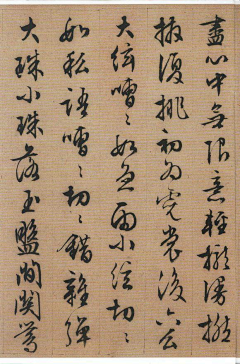 盡心中無限意輕攏慢撚
撥復挑初為霓裳後六么
大絃嘈〻如急雨小絃切〻
如私語嘈〻切〻錯雜彈
大珠小珠落玉盤間関鶯